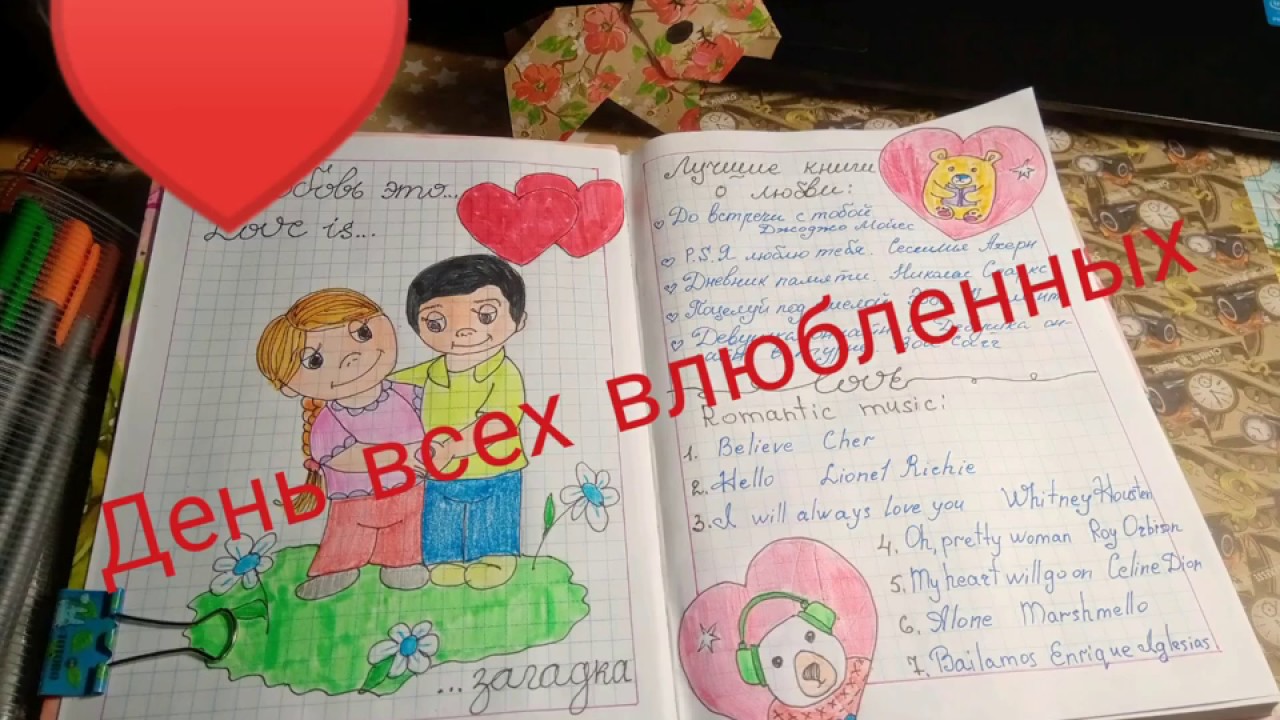 это...
Love is...
... загадка
Лучшие книги
о любви:
До встречи с тобой
Джоджо Мойес
P.S. Я люблю тебя. Сесилия Ахерн
Дневник памяти. Николас Спаркс
Поцелуй под
Love
Romantic music:
1. Believe Cher
2. Hello Lionel Richie
3. I will always love you Whitney Housten
4. Oh, pretty woman Roy Orbison
5. My heart will go on Celine Dion
6. Alone Marshmello
7. Bailamos Enrique Iglesias
День всех влюбленных